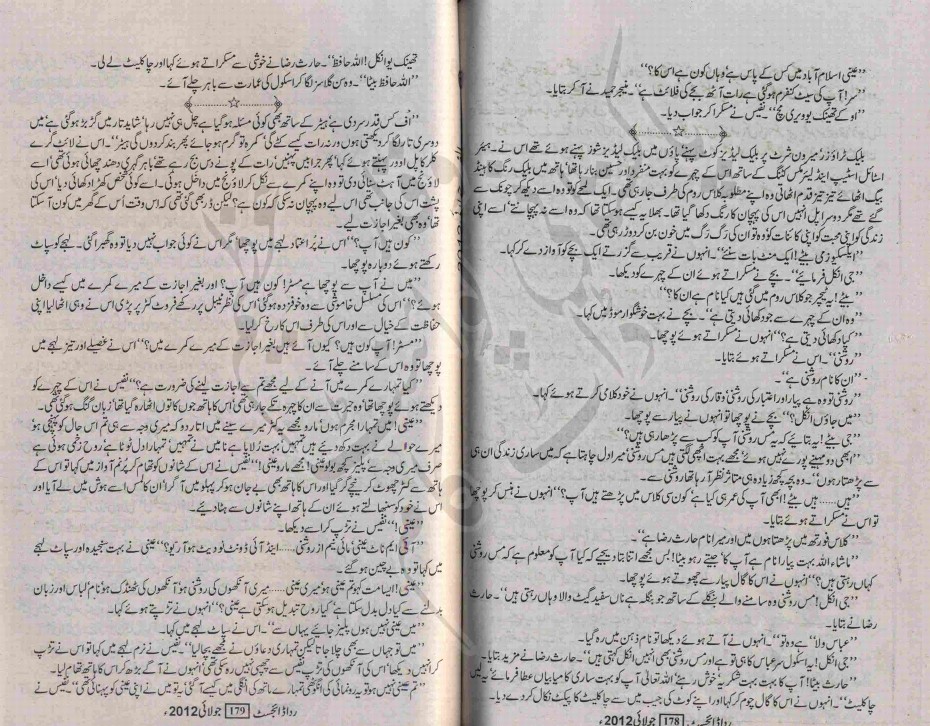 ’’عینی اسلام آباد میں کس کے پاس ہے وہاں کون ہے اس کا؟‘‘
’’سر! آپ کی سیٹ کنفرم ہو گئی ہے رات آٹھ بجے کی فلائٹ ہے‘‘۔ منیجر حمید نے آ کر بتایا۔
’’او کے تھینک یو ویری مچ‘‘۔ نفیس نے مسکرا کر جواب دیا۔
بلیک ٹراؤزر میرون شرٹ پر بلیک لیڈیز کوٹ پہنے پاؤں میں بلیک لیڈیز شوز پہنے ہوئے تھے اس نے۔ ہیئر
اسٹائل اسٹیپ اینڈ لیئرمس کٹنگ کے ساتھ اس کے چہرے کو بہت منفرد اور حسین بنا رہا تھا‘ ہاتھ میں بلیک رنگ کا ہینڈ
بیگ اٹھائے تیز تیز قدم اٹھاتی وہ اپنے مطلوبہ کلاس روم کی طرف جا رہی تھی۔ ایک لمحے کو تو وہ اسے دیکھ کر چونک سے
گئے تھے مگر دوسرا پل انہیں اس کی پہچان کا رنگ دکھا گیا تھا۔ بھلا یہ کیسے ہو سکتا تھا کہ وہ اسے نہ پہچانتے‘ اسے اپنی
زندگی کو اپنی محبت کو اپنی کائنات کو وہ تو ان کی رگ رگ میں خون بن کر دوڑ رہی تھی۔
’’ایکسکیوز می بیٹے! ایک منٹ بات سنئے‘‘۔ انہوں نے قریب سے گزرتے ایک بچے کو آواز دے کر کہا۔
’’جی انکل فرمائیے‘‘۔ بچے نے مسکراتے ہوئے ان کے چہرے کو دیکھا۔
’’بیٹے! یہ ٹیچر جو کلاس روم میں گئی ہیں کیا نام ہے ان کا؟‘‘
’’وہ ان کے چہرے سے جو دکھائی دیتی ہے‘‘۔ بچے نے بہت خوشگوار موڈ میں کہا۔
’’کیا دکھائی دیتی ہے؟‘‘ انہوں نے مسکراتے ہوئے پوچھا۔
’’روشنی‘‘۔ اس نے مسکراتے ہوئے بتایا۔
’’ان کا نام روشنی ہے‘‘۔
’’روشنی تو وہ ہے پیار اور اعتبار کی روشنی وقار کی روشنی‘‘۔ انہوں نے خود کلامی کرتے ہوئے کہا۔
’’میں جاؤں انکل؟‘‘ بچے نے پوچھا تو انہوں نے پیار سے پوچھا۔
’’جی بیٹے! یہ بتائیے کہ یہ مس روشنی آپ کو کب سے پڑھا رہی ہیں؟‘‘
’’ابھی دو مہینے پورے نہیں ہوئے‘ مجھے بہت اچھی لگتی ہیں مس روشنی میرا دل چاہتا ہے کہ میں ساری زندگی ان ہی
سے پڑھتا رہوں‘‘۔ وہ بچہ کچھ زیادہ ہی متاثر نظر آ رہا تھا روشنی سے۔
’’ہیں..... ہیں بیٹے! ابھی آپ کی عمر ہی کیا ہے‘ کون سی کلاس میں پڑھتے ہیں آپ؟‘‘ انہوں نے ہنس کر پوچھا
تو اس نے مسکراتے ہوئے بتایا۔
’’کلاس فورتھ میں پڑھتا ہوں میں اور میرا نام حارث رضا ہے‘‘۔
’’ماشاء اللہ بہت پیارا نام ہے آپ کا‘ جیتے رہو بیٹا! بس مجھے اتنا بتا دیجئے کہ کیا آپ کو معلوم ہے کہ مس روشنی
کہاں رہتی ہیں؟‘‘ انہوں نے اس کا گال پیار سے چھوتے ہوئے پوچھا۔
’’جی انکل! مس روشنی وہ سامنے والے بنگلے کے ساتھ جو بنگلہ ہے ناں سفید گیٹ والا وہاں رہتی ہیں‘‘۔ حارث
رضا نے بتایا۔
’’عباس ولا‘‘ ہے وہ تو‘‘۔ انہوں نے آتے ہوئے دیکھا تو نام ذہن میں رہ گیا۔
’’جی انکل! یہ اسکول سر عباس کا ہی تو ہے اور مس روشنی بھی انہیں انکل کہتی ہیں‘‘۔ حارث رضا نے مزید بتایا۔
’’حارث بیٹا! آپ کا بہت بہت شکریہ‘ خوش رہئے‘ اللہ تعالیٰ آپ کو بہت ساری کامیابیاں عطا فرمائے‘ یہ لیں
چاکلیٹ‘‘۔ انہوں نے اس کا گال چوم کر کہا اور اپنے کوٹ کی جیب میں سے چاکلیٹ کا پیکٹ نکال کر دے دیا۔
رداڈائجسٹ 178 جولائی 2012ء
تھینک یو انکل! اللہ حافظ‘‘۔ حارث رضا نے خوشی سے مسکراتے ہوئے کہا اور چاکلیٹ لے لی۔
’’اللہ حافظ بیٹا‘‘۔ وہ سن گلاسز لگا کر اسکول کی عمارت سے باہر چلے آئے۔
’’اف کس قدر سردی ہے ہیٹر کے ساتھ بھی کوئی مسئلہ ہو گیا ہے چل ہی نہیں رہا‘ شاید تار میں گڑبڑ ہو گئی ہے‘ میں
دوسری تار لگا کر دیکھتی ہوں ورنہ رات کیسے کٹے گی‘ کمرہ تو گرم ہو جائے پھر بند کر دوں گی ہیٹر‘‘۔ اس نے لائٹ گرے
کلر کا پل اوور پہنتے ہوئے کہا‘ پھر جرابیں پہنیں‘ رات کے پونے دس بج رہے تھے‘ باہر گہری دھند چھائی ہوئی تھی‘ اسے
لاؤنج میں آہٹ سنائی دی تو وہ اپنے کمرے سے نکل کر لاؤنج میں داخل ہوئی۔ اسے کوئی شخص کھڑا دکھائی دیا‘ اس کی
پشت اس کی جانب تھی اس لیے وہ پہچان نہ سکی کہ کون ہے؟ لیکن ڈر بھی گئی تھی کہ اس وقت اُس کے گھر میں کون آ سکتا
تھا‘ وہ بھی بغیر اجازت لیے۔
’’کون ہیں آپ؟‘‘ اس نے پُر اعتماد لہجے میں پوچھا‘ مگر اس نے کوئی جواب نہیں دیا تو وہ گھبرا گئی۔ لہجے کو سپاٹ
رکھتے ہوئے دوبارہ پوچھا۔
’’میں نے آپ سے پوچھا ہے مسٹر! کون ہیں آپ؟ اور بغیر اجازت کے میرے کمرے میں کیسے داخل
ہوئے؟‘‘ اس کی مسلسل خاموشی سے وہ خوفزدہ ہو گئی‘ اس کی نظر ٹیبل پر رکھے فروٹ کٹر پر پڑی اس نے وہی اٹھا لیا‘ اپنی
حفاظت کے خیال سے اور اس کی طرف اس کا رخ کر لیا۔
’’مسٹر! آپ کون ہیں؟ کیوں آئے ہیں بغیر اجازت کے میرے کمرے میں؟‘‘ اس نے غصیلے اور تیز لہجے میں
پوچھا تو وہ اس کے سامنے چلے آئے۔
’’کیا تمہارے کمرے میں آنے کے لیے مجھے تم سے اجازت لینے کی ضرورت ہے؟‘‘ نفیس نے اس کے چہرے کو
دیکھتے ہوئے پوچھا تھا‘ وہ حیرت سے ان کا چہرہ تکے جا رہی تھی اس کا ہاتھ جوں کا توں اٹھا رہ گیا تھا‘ زبان گنگ ہو گئی تھی۔
’’عینی! میں تمہارا مجرم ہوں مارو مجھے یہ کٹر میرے سینے میں اتار دو کہ میری وجہ سے ہی تم اس حال کو پہنچی ہو
میرے حوالے نے بہت دکھ دیئے ہیں تمہیں بہت رُلایا ہے ناں میں نے تمہیں‘ تمہارا دل ٹوٹا ہے روح زخمی ہوئی ہے
صرف میری وجہ سے‘ پلیز کچھ بولو عینی! مجھے مارو عینی‘‘! نفیس نے اس کے شانوں کو تھام کر پُرنم آواز میں کہا تو اس کے
ہاتھ سے کٹر چھوٹ کر نیچے گر گیا اور اس کا ہاتھ بھی بے جان ہو کر پہلو میں آ گرا‘ ان کا لمس اسے ہوش میں لے آیا اور
اس نے خود کو سنبھالتے ہوئے ان کے ہاتھ اپنے شانوں سے ہٹا دیئے۔
’’عینی‘‘! نفیس نے تڑپ کر اسے دیکھا۔
’’آئی ایم ناٹ عینی‘ مائی نیم از روشنی..... اینڈ آئی ڈونٹ نو دیٹ ہو آر یو؟‘‘ عینی نے بہت سنجیدہ اور سپاٹ لہجے
میں کہا تو وہ بے چین ہو گئے۔
’’عینی! ایسا مت کہو تم عینی ہو میری عینی..... میری آنکھوں کی روشنی ہو‘ آنکھوں کی ٹھنڈک ہو‘ نام‘ لباس اور زبان
بدلنے سے کیا دل بدل سکتا ہے‘ کیا روح تبدیل ہو سکتی ہے عینی؟‘‘ انہوں نے تڑپتے ہوئے کہا۔
’’میں عینی نہیں ہوں پلیز جائیے یہاں سے‘‘۔ اس نے سپاٹ لہجے میں کہا۔
’’میں تو جہاں سے بھی چلا جاتا لیکن تمہاری دعاؤں نے مجھے بچا لیا‘‘۔ نفیس نے نرم لہجے میں کہا تو اس نے تڑپ
کر انہیں دیکھا‘ اس کی آنکھوں کی تڑپ نفیس سے چھپی نہیں رہ سکی تھی‘ انہوں نے آگے بڑھ کر اس کا ہاتھ تھام لیا۔
’’تم عینی نہیں ہو تو یہ رونمائی کی انگوٹھی تمہارے ہاتھ کی انگلی میں کیسے آ گئی‘ یہ تو میں نے اپنی عینی کو پہنائی تھی‘‘۔ نفیس نے
رداڈائجسٹ 179 جولائی 2012ء